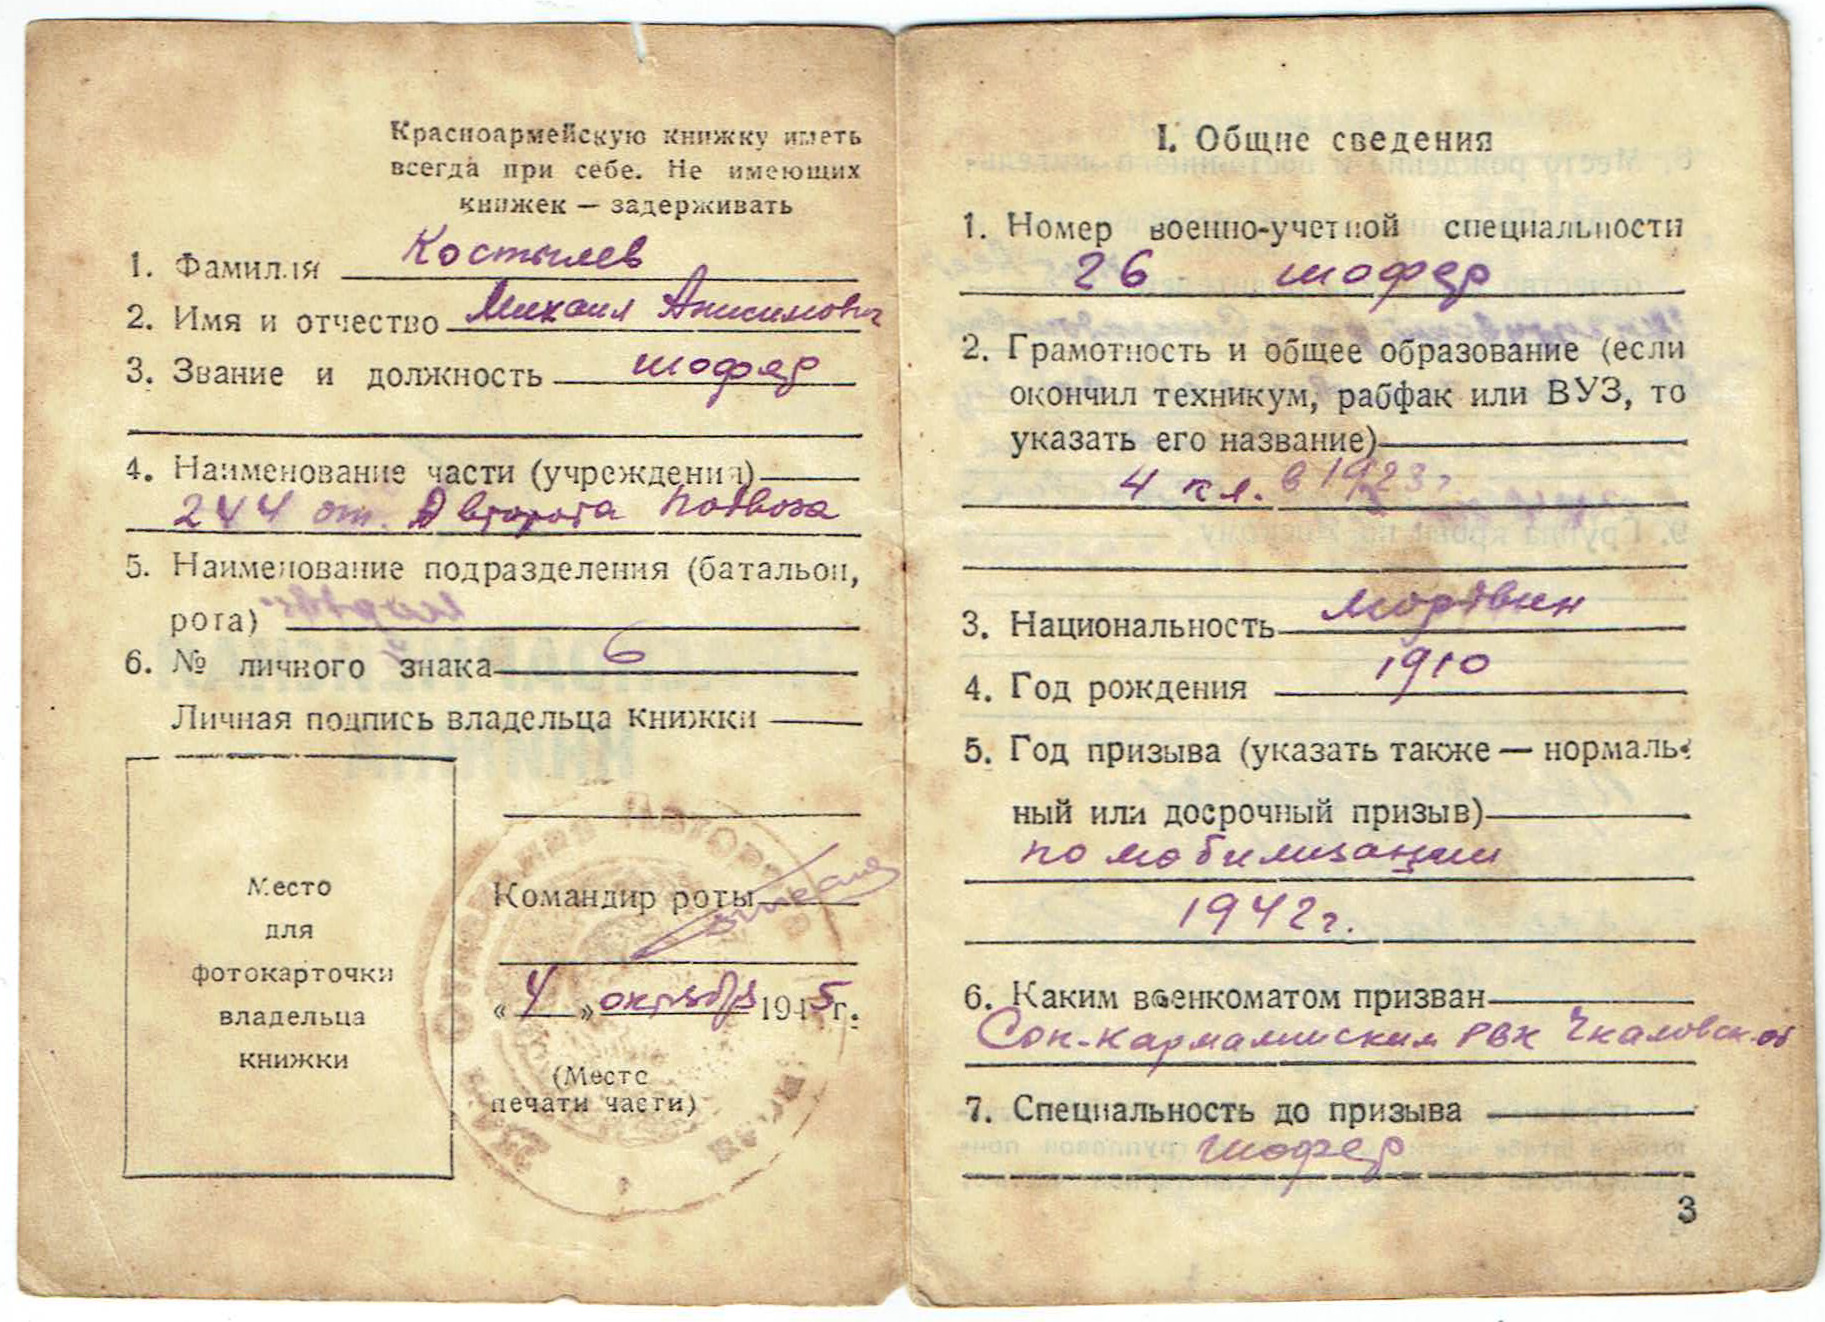 Красноармейскую книжку иметь
всегда при себе. Не имеющих
книжек — задерживать
1. Фамилия Костылев
2. Имя и отчество Михаил Анисимович
3. Звание и должность шофер
4. Наименование части (учреждения)
244 от. Авторота подвоза
5. Наименование подразделения (батальон,
рота)
6. № личного знака 6
Личная подпись владельца книжки
Место
для
фотокарточки
владельца
книжки
Командир роты
« 4 » октября 1945 г.
(Место
печати части)
I. Общие сведения
1. Номер военно-учетной специальности
26 шофер
2. Грамотность и общее образование (если
окончил техникум, рабфак или ВУЗ, то
указать его название)
4 кл. в 1923 г
3. Национальность мордвин
4. Год рождения 1910
5. Год призыва (указать также — нормаль-
ный или досрочный призыв)
по мобилизации
1942 г.
6. Каким военкоматом призван
Сок-Кармалинским РВК Чкаловск. об
7. Специальность до призыва
шофер
3